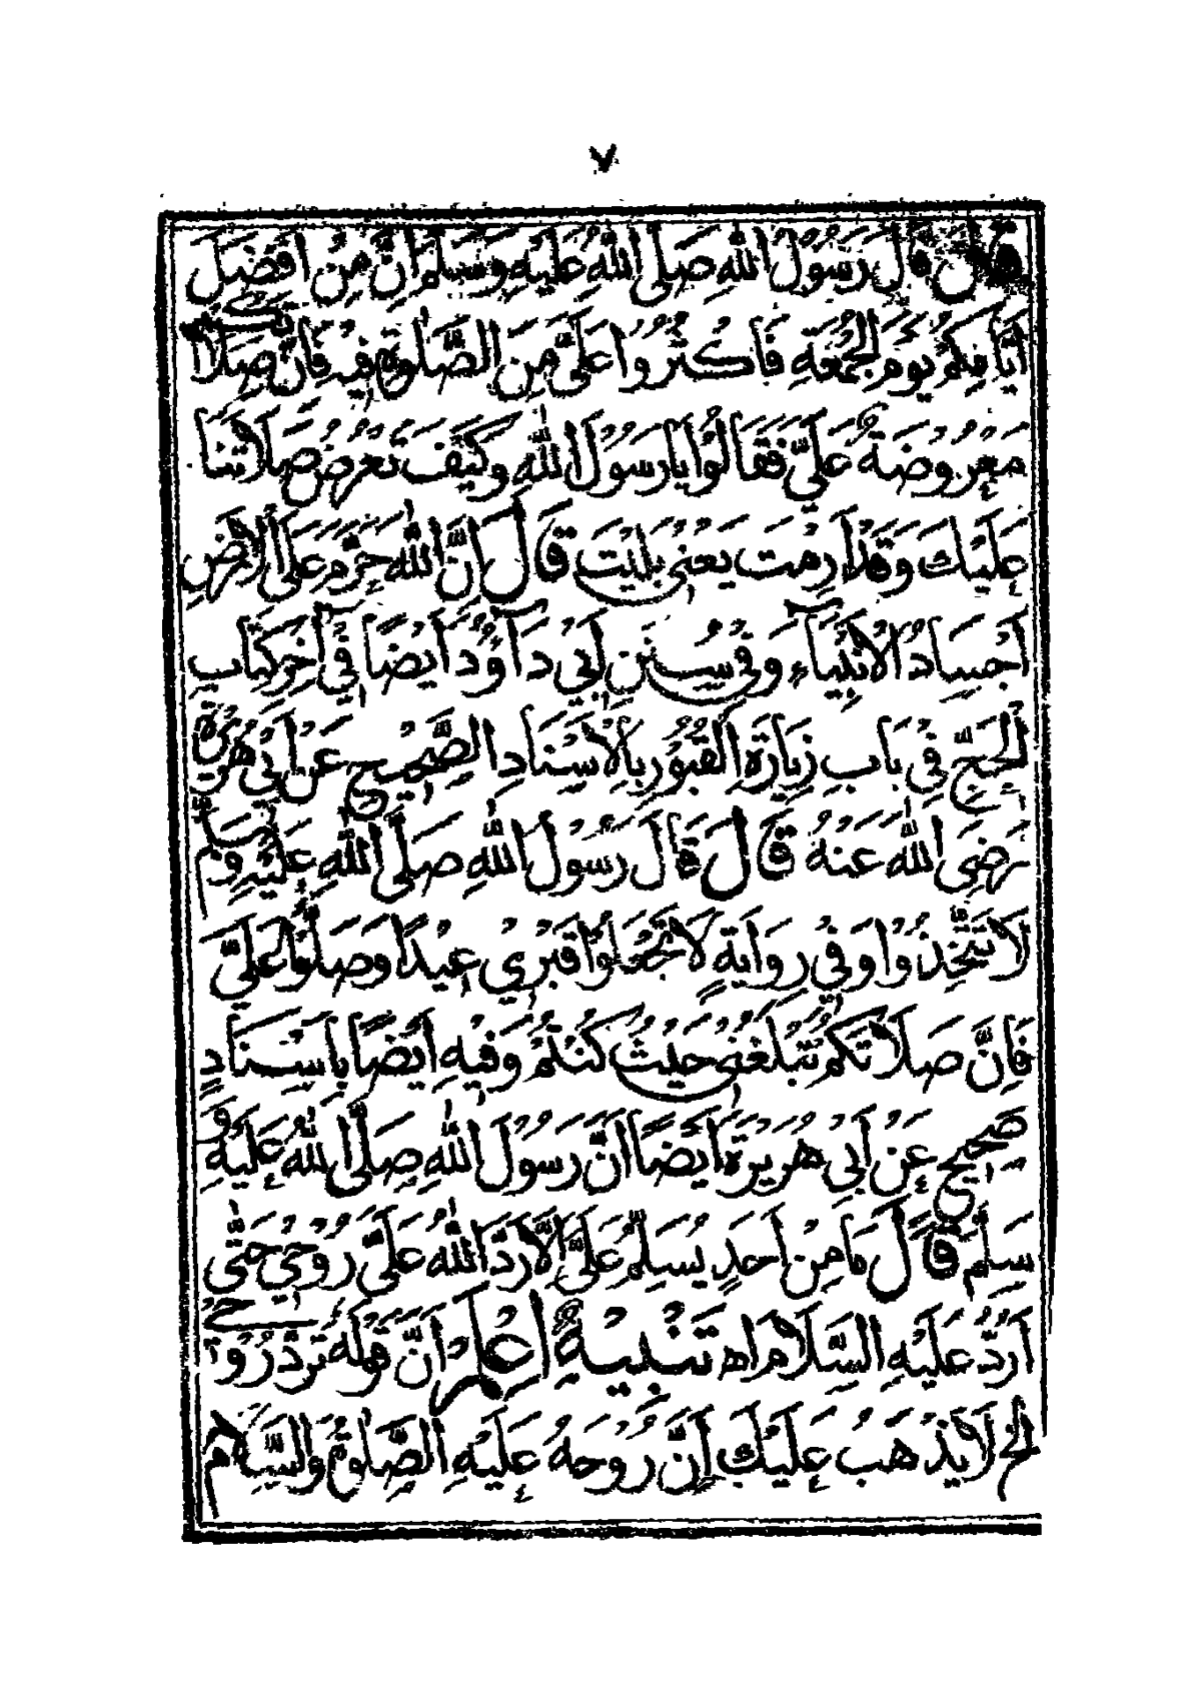 ٧
قال قال رسول الله صلى الله عليه وسلم ان من افضل
ايامكم يوم الجمعة فاكثروا علي من الصلوة فيه فان صلاتكم
معروضة علي فقالوا يا رسول الله وكيف تعرض صلاتنا
عليك وقد ارمت يعني بليت قال ان الله حرم على الارض
اجساد الانبياء وفي سنن ابي داوود ايضا في اخر كتاب
الحج في باب زيارة القبور بالاسناد الصحيح عن ابي هريرة
رضي الله عنه قال قال رسول الله صلى الله عليه وسلم
لا تتخذوا وفي رواية لا تجعلوا قبري عيدا وصلوا علي
فان صلاتكم تبلغني حيث كنتم وفيه ايضا باسناد
صحيح عن ابي هريرة ايضا ان رسول الله صلى الله عليه و
سلم قال ما من احد يسلم علي الا رد الله علي روحي حتى
ارد عليه السلام اه تنبيه اعلم ان قوله ترد روحي
الخ لا يذهب عليك ان روحه عليه الصلوة والسلام